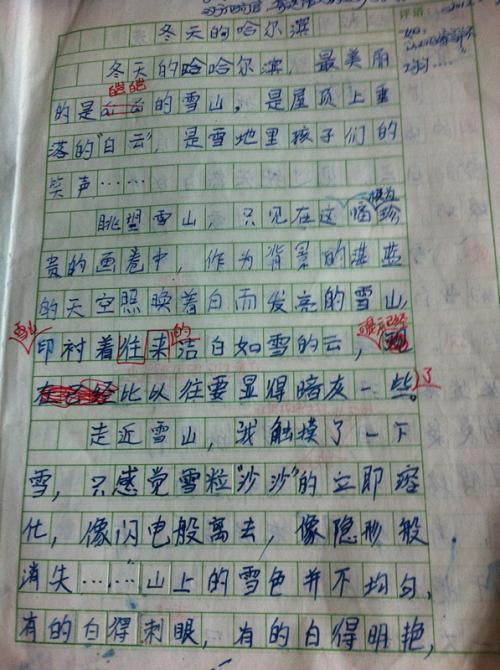 评语:
冬天的哈尔滨
冬天的哈哈尔滨，最美丽
皑皑
的是的雪山，是屋顶上垂
落的"白云"，是雪地里孩子们的
笑声……
眺望雪山，只见在这幅珍
贵的画卷中，作为背景的湛蓝
的天空照唤着白而发亮的雪山，
雪山
印衬着往来洁白如雪的云，
的
比以往要显得暗灰一些。
了
走近雪山，我触摸了一下
雪，只感觉雪粒"沙沙"的立即溶
化，像闪电般离去，像隐形般
消失……山上的雪色并不均匀，
有的白得刺眼，有的白得明艳，